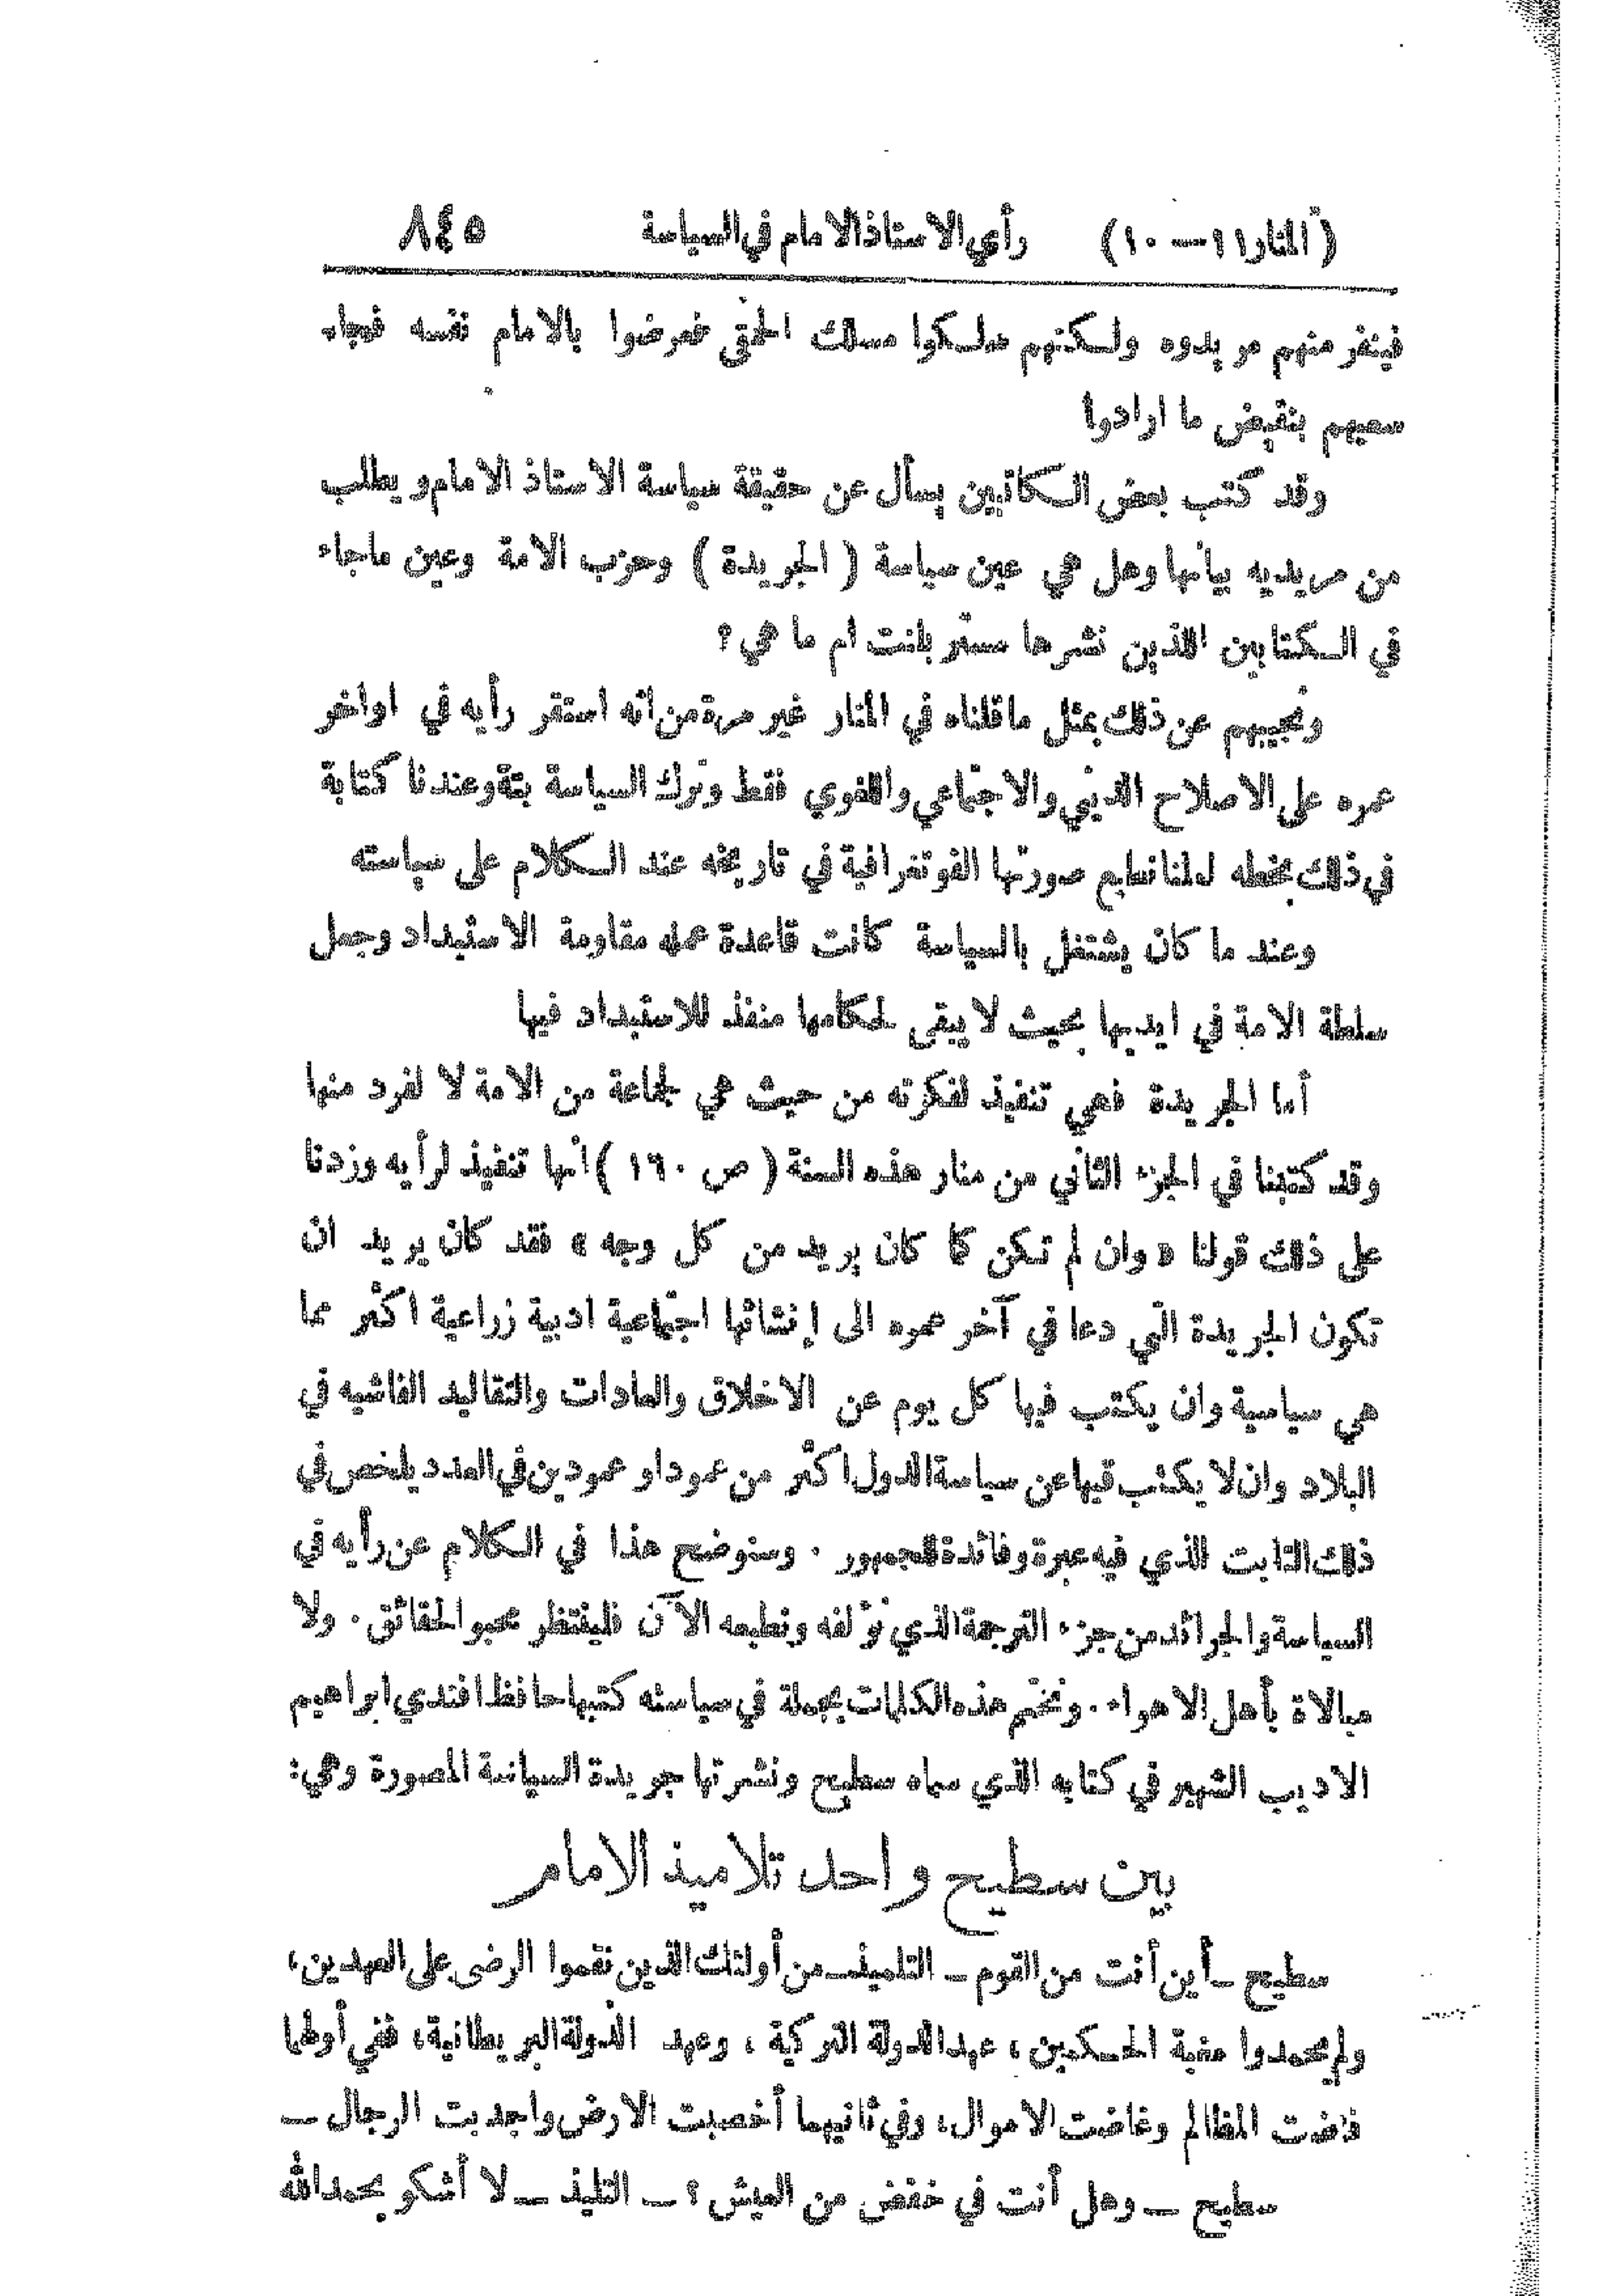 (المنار ١١ — ١٠) رأي الاستاذ الامام في السياسة ٨٤٥
فينفر منهم مريدوه ولكنهم سلكوا مسلك الحمق فعرضوا بالامام نفسه فجاء
سعيهم بنقيض ما ارادوا
وقد كتب بعض الكاتبين يسأل عن حقيقة سياسة الاستاذ الامام ويطلب
من مريديه بيانها وهل هي عين سياسة (الجريدة) وحزب الامة وعين ماجاء
في الكتابين اللذين نشرها مستر بلنت ام ما هي؟
ونجيبهم عن ذلك بمثل ماقلناه في المنار غير مرة من انه استقر رأيه في اواخر
عمره على الاصلاح الديني والاجتماعي واللغوي فقط وترك السياسة بتة وعندنا كتابة
في ذلك بخطه لعلنا نطبع صورتها الفوتغرافية في تاريخه عند الكلام على سياسته
وعند ما كان يشتغل بالسياسة كانت قاعدة عمله مقاومة الاستبداد وجعل
سلطة الامة في ايديها بحيث لا يبقى لحكامها منفذ للاستبداد فيها
أما الجريدة فهي تنفيذ لفكرته من حيث هي لجماعة من الامة لا لفرد منها
وقد كتبنا في الجزء الثاني من منار هذه السنة (ص ١٦٠) انها تنفيذ لرأيه وزدنا
على ذلك قولنا « وان لم تكن كما كان يريد من كل وجه » فقد كان يريد ان
تكون الجريدة التي دعا في آخر عمره الى إنشائها اجتماعية ادبية زراعية اكثر مما
هي سياسية وان يكتب فيها كل يوم عن الاخلاق والعادات والتقاليد الفاشيه في
البلاد وان لا يكتب فيها عن سياسة الدول اكثر من عمود او عمودين في العدد يلخص في
ذلك الثابت الذي فيه عبرة وفائدة للجمهور . وسنوضح هذا في الكلام عن رأيه في
السياسة والجرائد من جزء الترجمة الذي نؤلفه ونطبعه الآن فلينتظر محبو الحقائق . ولا
مبالاة بأهل الاهواء . ونختم هذه الكلمات بجملة في سياسته كتبها حافظ افندي ابراهيم
الاديب الشهير في كتابه الذي سماه سطيح ونشرتها جريدة السياسة المصورة وهي:
بين سطيح واحد تلاميذ الامام
سطيح — أين أنت من القوم — التلميذ — من أولئك الذين نقموا الرضى على العهدين،
ولم يحمدوا مغبة الحكمين، عهد الدولة التركية، وعهد الدولة البريطانية، ففي أولهما
فاضت المظالم وغاضت الاموال، وفي ثانيهما أخصبت الارض واجدبت الرجال —
سطيح — وهل أنت في خفض من العيش؟ — التلميذ — لا أشكو بحمدالله